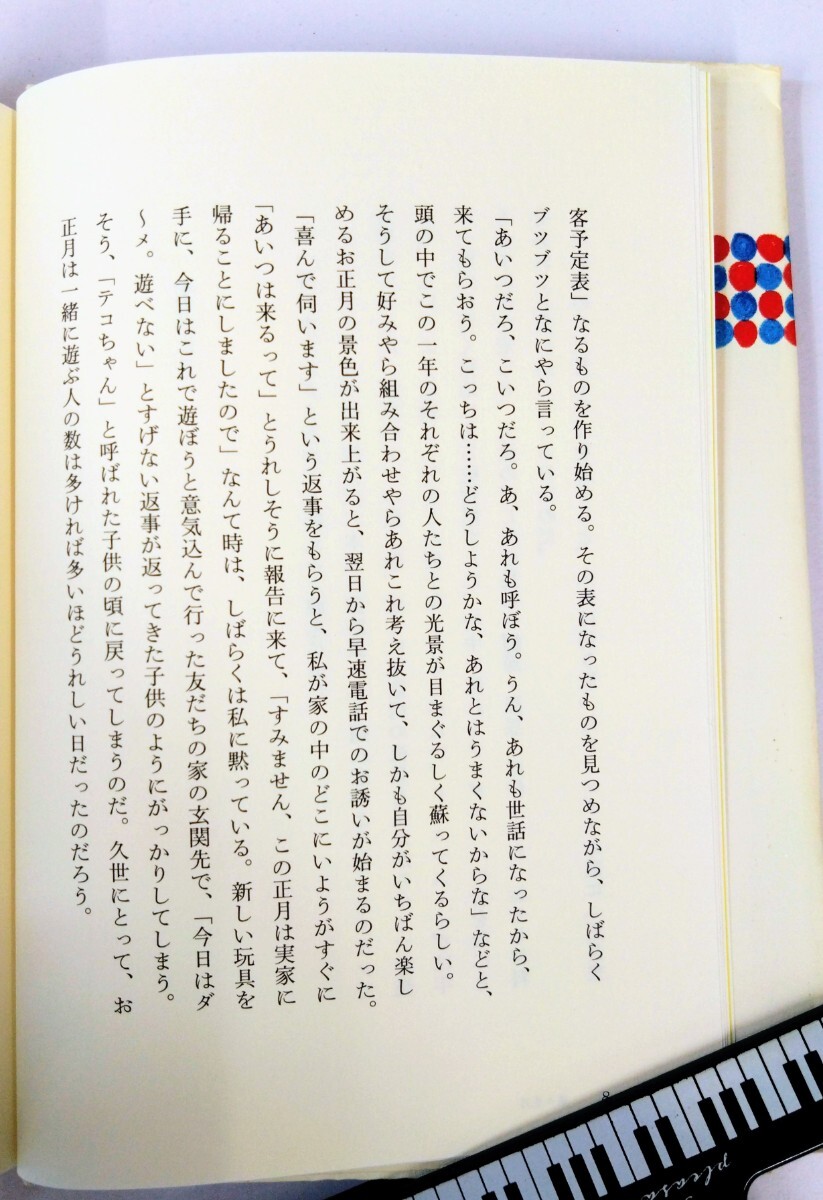 客予定表」なるものを作り始める。その表になったものを見つめながら、しばらく
ブツブツとなにやら言っている。
「あいつだろ、こいつだろ。あ、あれも呼ぼう。うん、あれも世話になったから、
来てもらおう。こっちは……どうしようかな、あれとはうまくないからな」などと、
頭の中でこの一年のそれぞれの人たちとの光景が目まぐるしく蘇ってくるらしい。
そうして好みやら組み合わせやらあれこれ考え抜いて、しかも自分がいちばん楽し
めるお正月の景色が出来上がると、翌日から早速電話でのお誘いが始まるのだった。
「喜んで伺います」という返事をもらうと、私が家の中のどこにいようがすぐに
「あいつは来るって」とうれしそうに報告に来て、「すみません、この正月は実家に
帰ることにしましたので」なんて時は、しばらくは私に黙っている。新しい玩具を
手に、今日はこれで遊ぼうと意気込んで行った友だちの家の玄関先で、「今日はダ
〜メ。遊べない」とすげない返事が返ってきた子供のようにがっかりしてしまう。
そう、「テコちゃん」と呼ばれた子供の頃に戻ってしまうのだ。久世にとって、お
正月は一緒に遊ぶ人の数は多ければ多いほどうれしい日だったのだろう。